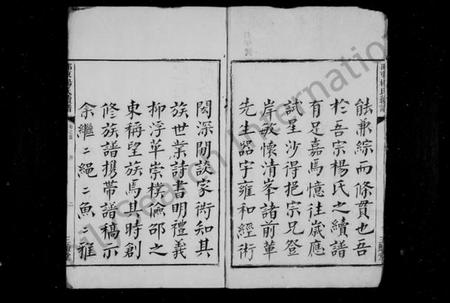 能兼綜而條貫也吾
於吾宗楊氏之續譜
有足嘉焉憶往歲應
試星沙得挹宗兄登
岸畞懷清峯諸前輩
先生器宇雍和經術
閎深閒談家術知其
族世業詩書明禮義
柳浮華崇樸儉邵之
東稱望族焉其時創
修族譜携帶譜稿示
余繼二繩二魚二雅